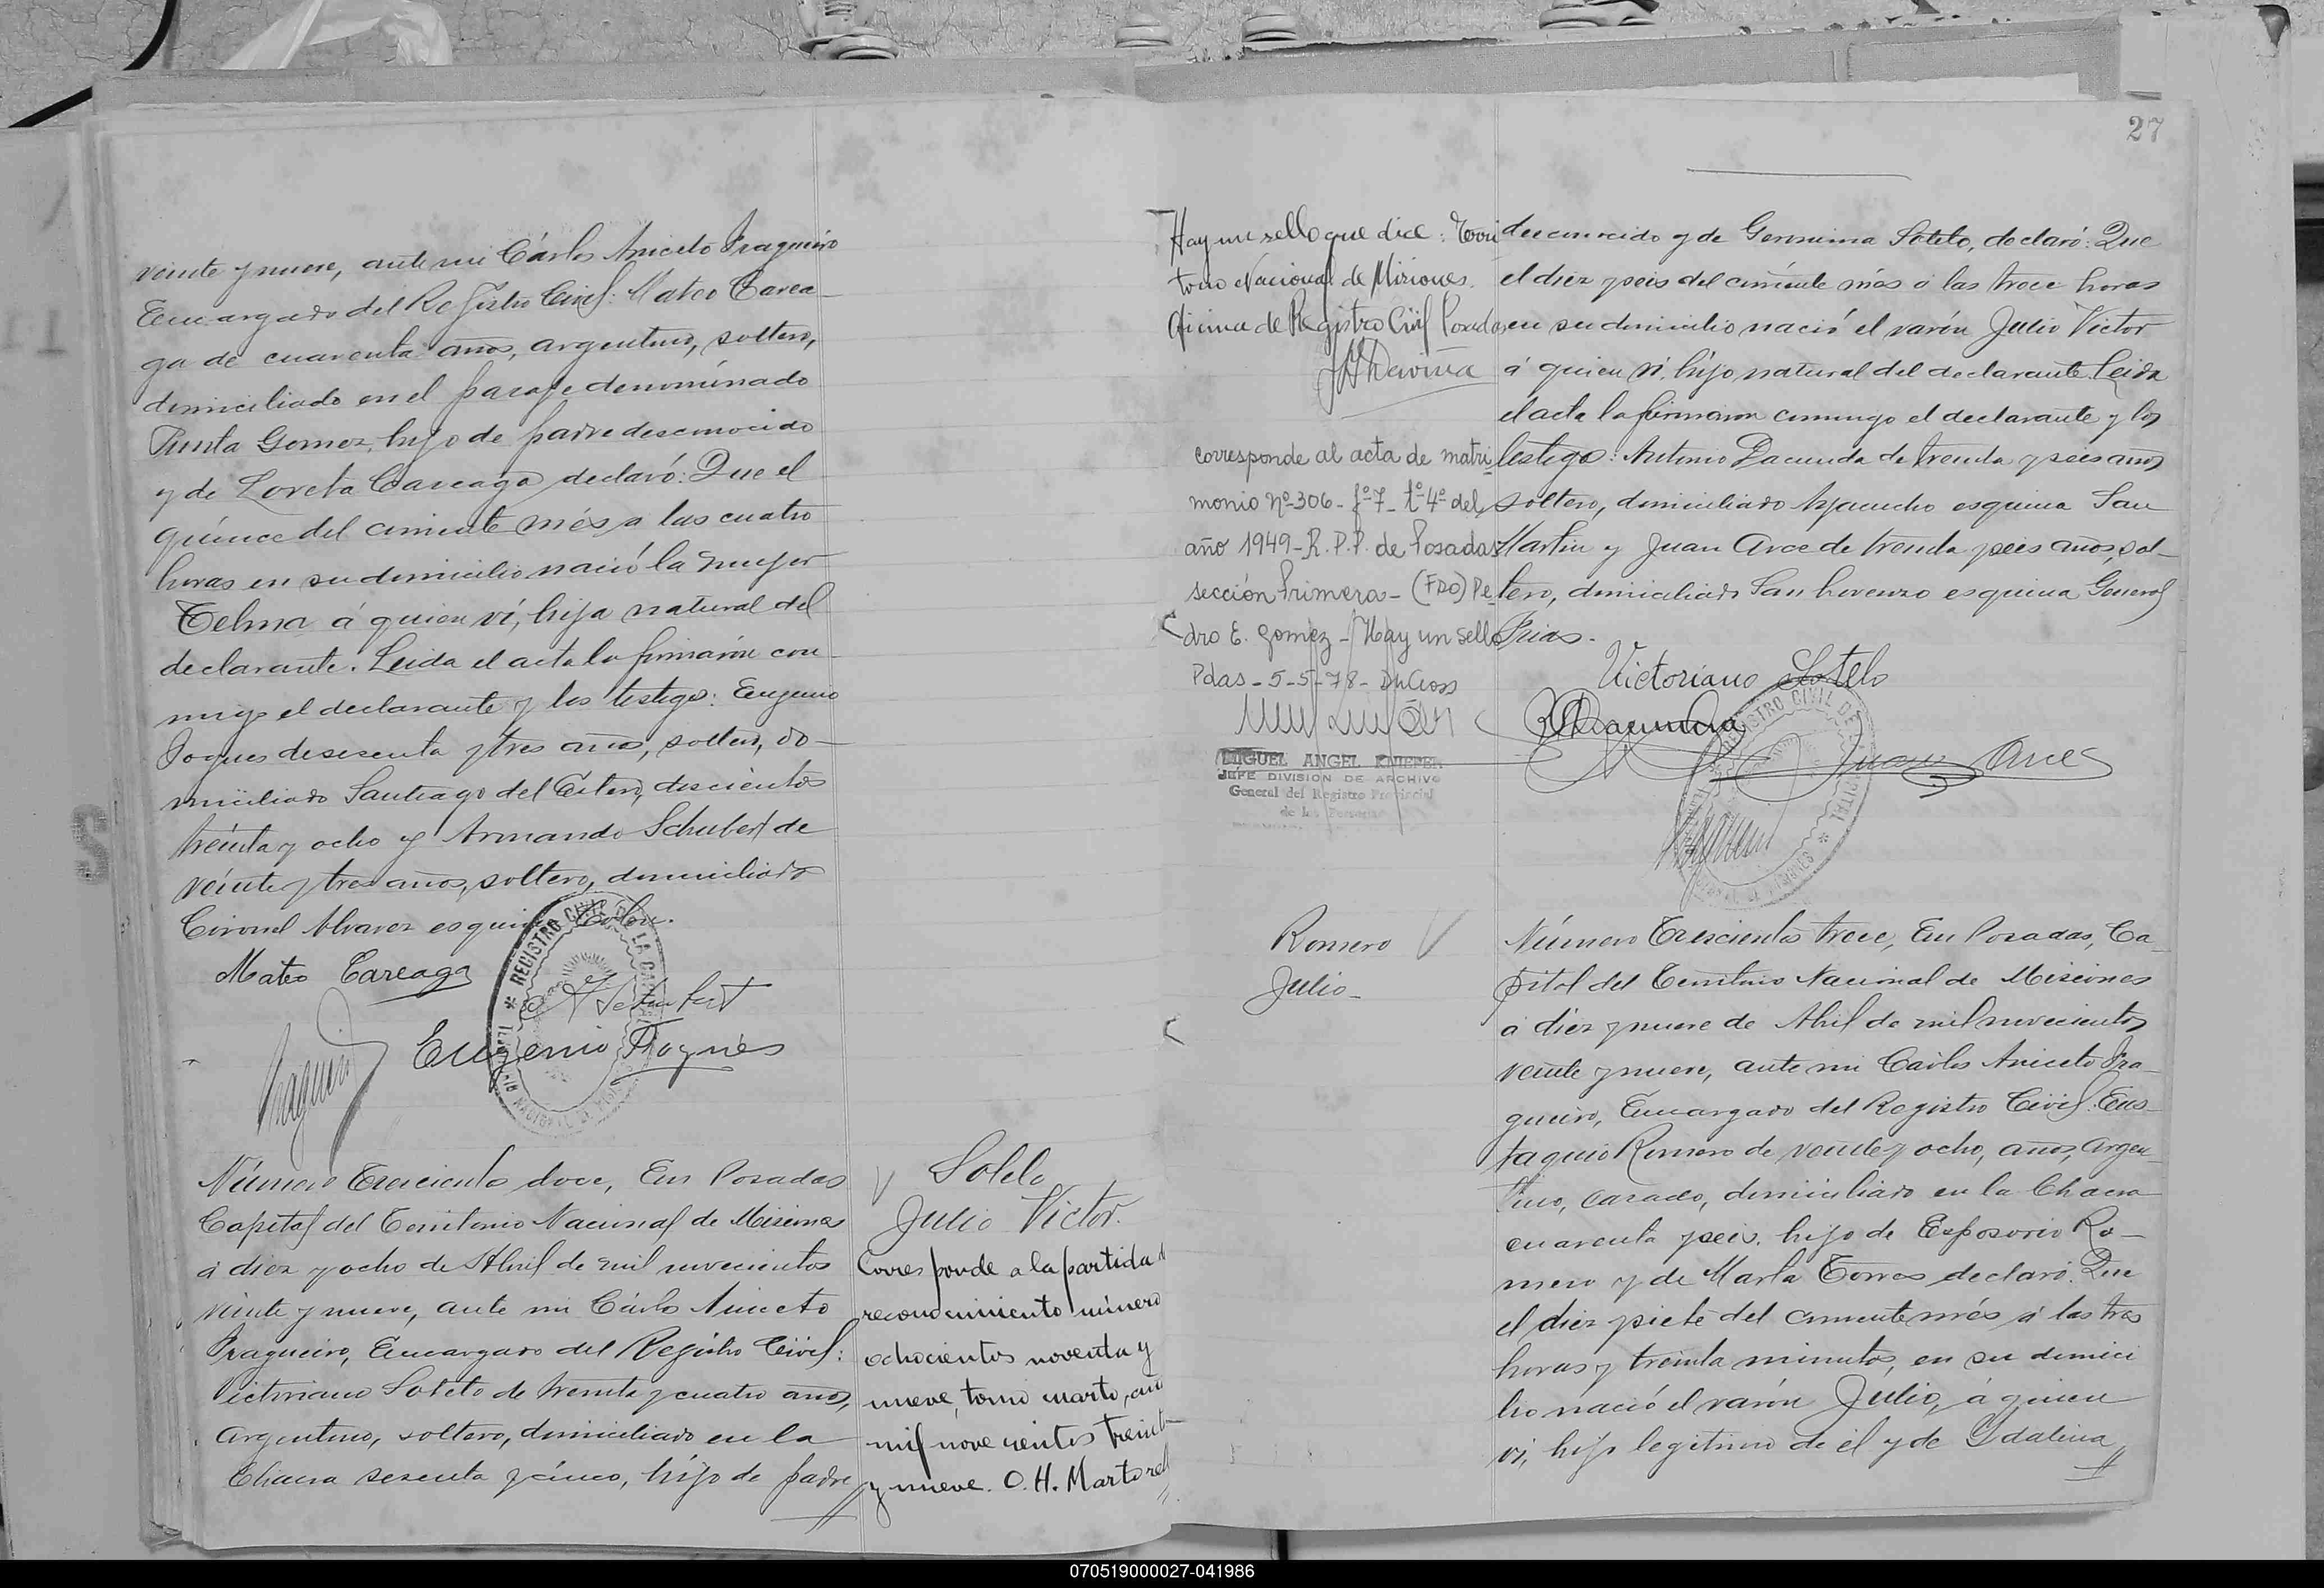 veinte y nueve, ante mi Cárlos Aniceto Fragueiro
Encargado del Registro Civil: Mateo Carea-
ga de cuarenta años, argentino, soltero,
domiciliado en el paraje denominado
Punta Gomez, hijo de padre desconocido
y de Loreta Careaga declaró: Que el
quince del corriente més a las cuatro
horas en su domicilio nació la mujer
Telma á quien ví, hija natural del
declarante. Leida el acta la firmaron con-
migo el declarante y los testigos: Eugenio
de sesenta y tres años, soltero, do-
miciliado Santiago del Estero, doscientos
treinta y ocho y Armando Schubert de
veinte y tres años, soltero, domiciliado
Coronel Alvarez esquina Colon.
Mateo Careaga
A Schubert
Eugenio
Fragueiro
REGISTRO CIVIL DE LA CAPITAL
Número Trescientos doce, En Posadas
Capital del Territorio Nacional de Misiones
á diez y ocho de Abril de mil novecientos
veinte y nueve, ante mi Cárlos Aniceto
Fragueiro, Encargado del Registro Civil:
Victoriano Sotelo de treinta y cuatro años,
argentino, soltero, domiciliado en la
Chacra sesenta y cinco, hijo de padre
Sotelo
Julio Victor.
Corresponde a la partida d
reconocimiento número
ochocientos noventa y
nueve, tomo cuarto, año
mil novecientos treinta
y nueve. O. H. Martorell
27
Hay un sello que dice: Terri
torio Nacional de Misiones.
Oficina de Registro Civil Posadas
corresponde al acta de matri-
monio nº 306 - fº 7 - tº 4º del
año 1949 - R. P. P. de Posadas
sección Primera - (FDO) Pe-
dro E. Gomez - Hay un sello
Pdas - 5-5-78 -
MIGUEL ANGEL KNIEPER
JEFE DIVISION DE ARCHIVO
General del Registro Provincial
de las Personas
desconocido y de Geronima Sotelo, declaró: Que
el diez y seis del corriente més a las trece horas
en su domicilio nació el varón Julio Victor
á quien ví, hijo natural del declarante. Leida
el acta la firmaron conmigo el declarante y los
testigos: Antonio Dacunda de treinta y seis años
soltero, domiciliado Ayacucho esquina San
Martin y Juan Arce de treinta y seis años, sol-
tero, domiciliado San Lorenzo esquina General
Frias.
Victoriano Sotelo
Juan Arce
REGISTRO CIVIL DE LA CAPITAL
Romero
Julio
Número Trescientos trece, En Posadas, Ca-
pital del Territorio Nacional de Misiones
á diez y nueve de Abril de mil novecientos
veinte y nueve, ante mi Cárlos Aniceto Fra-
gueiro, Encargado del Registro Civil: Eus-
taquio Romero de veinte y ocho, años, argen-
tino, casado, domiciliado en la Chacra
cuarenta y seis, hijo de Esposorio Ro-
mero y de Marta Torres declaró: Que
el diez y siete del corriente més á las tres
horas y treinta minutos, en su domici
lio nació el varón Julio, á quien
ví, hijo legitimo de él y de Idalina
070519000027-041986